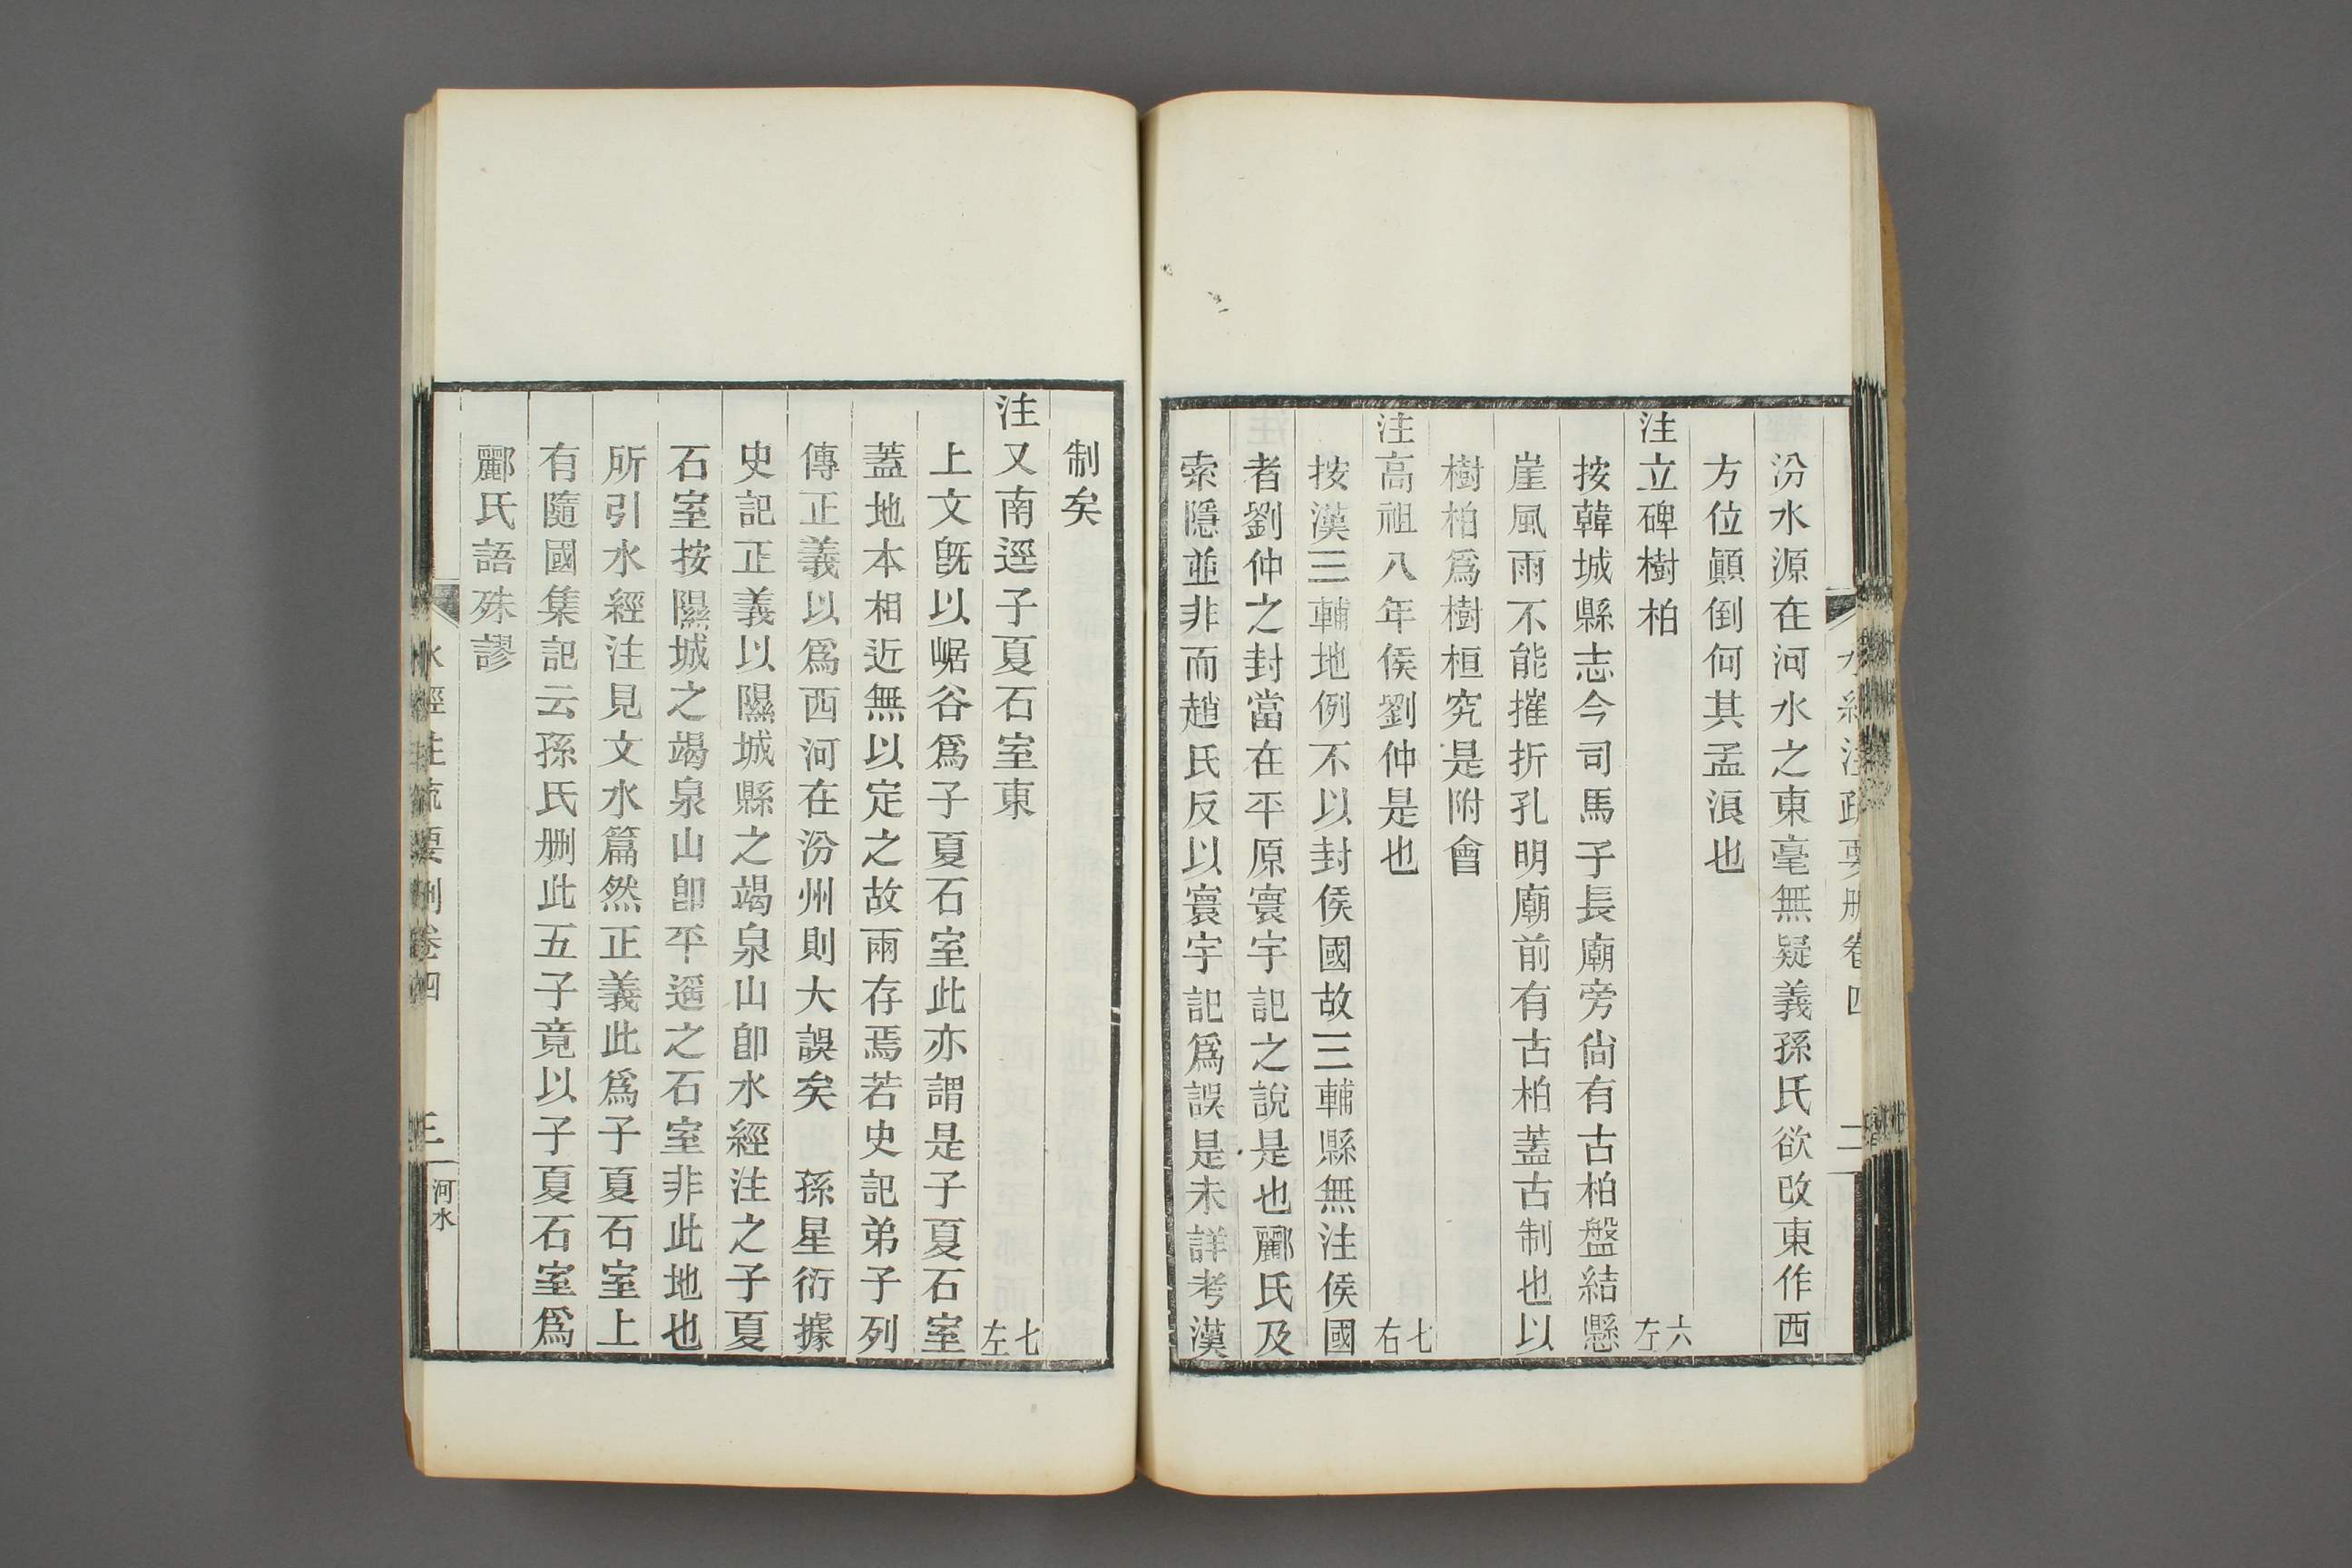 汾水源在河水之東毫無疑義孫氏欲改東作西
方位顚倒何其孟浪也
注立碑樹柏 六左
按韓城縣志今司馬子長廟旁尙有古柏盤結懸
崖風雨不能摧折孔明廟前有古柏蓋古制也以
樹柏爲樹桓究是附會
注高祖八年侯劉仲是也 七右
按漢三輔地例不以封侯國故三輔縣無注侯國
者劉仲之封當在平原寰宇記之說是也酈氏及
索隱並非而趙氏反以寰宇記爲誤是未詳考漢
制矣
注又南逕子夏石室東 七左
上文旣以崌谷爲子夏石室此亦謂是子夏石室
蓋地本相近無以定之故兩存焉若史記弟子列
傳正義以爲西河在汾州則大誤矣 孫星衍據
史記正義以隰城縣之竭泉山卽水經注之子夏
石室按隰城之竭泉山卽平遥之石室非此地也
所引水經注見文水篇然正義此爲子夏石室上
有隨國集記云孫氏删此五子竟以子夏石室爲
酈氏語殊謬
水經注疏要删卷四 三 河水